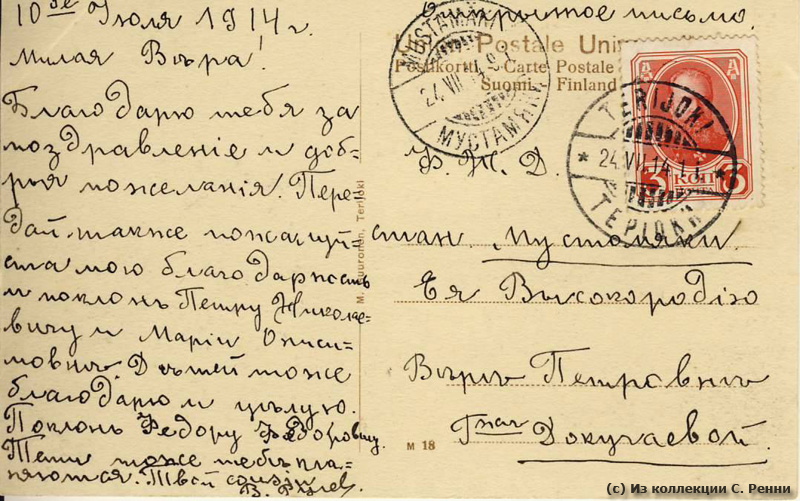 10го Июля 1914 г.
Милая Вѣра!
Благодарю тебя за
поздравленіе и доб-
рыя пожеланія. Пере-
дай также пожалуй-
ста мою благодарность
и поклонъ Петру Николае-
вичу и МаріиОниси-
мовнѣ. Дѣтей тоже
благодарю и цѣлую.
Поклонъ Федору Федоровичу.
тоже тебѣ кла-
няются. Твой
В.
Открытое письмо.
Union Postale Uni
Postikortti - Carte Postale
Suomi - Finland
MUSTAMÄKI
24. VII. 14. 9
МУСТАМЯКИ
TERIJOKI
24. VII. 14. 11
ТЕРІОКИ
3 КОП 3
Ф. Ж. Д.
стан. Мустомяки.
Ея Высокородію
Вѣрѣ Петровнѣ
Гжѣ Докучаевой.
M. Nuuronen, Terijoki
M 18
(c) Из коллекции С. Ренни